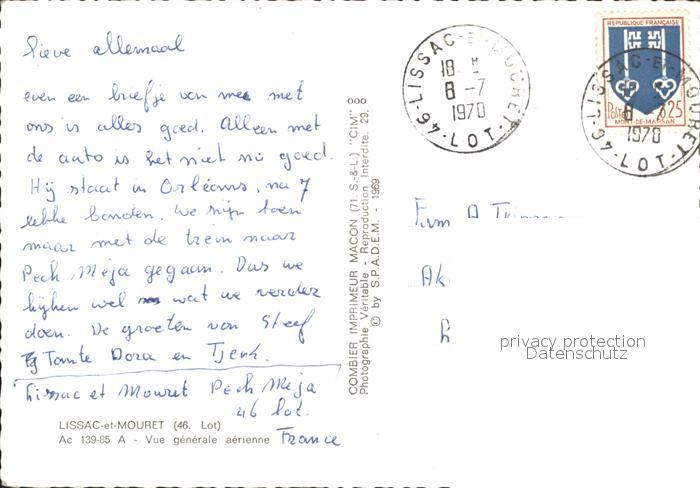 Lieve allemaal
even een briefje van mee met
ons is alles goed. Alleen met
de auto is het niet zo goed.
Hij staat in Orléans, na 7
lekke banden. We zijn toen
maar met de trein naar
Pech Méja gegaan. Dus we
kijken wel wat we verder
doen. De groeten van Steef
Tante Dora en Tjerk.
Lissac et Mouret Pech Méja
46 lot.
France
LISSAC-et-MOURET (46. Lot)
Ac 139-85 A - Vue générale aérienne
COMBIER IMPRIMEUR MACON (71. S.-&-L.) "CIM"
Photographie Véritable - Reproduction Interdite. 29.
© by S.P.A.D.E.M. - 1969
46-LISSAC-ET-MOURET
LOT
18 H
8 -7
1970
REPUBLIQUE FRANÇAISE
POSTES 0,25
MONT-DE-MARSAN
46-LISSAC-ET-MOURET
LOT
8 -7
1970
Firm
Ak
privacy protection
Datenschutz